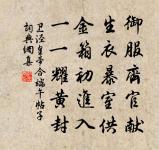 御服齋官獻
生衣暴室供
金箱初進入
一一耀黃封
卫泾皇帝合端午帖子
詞典網集